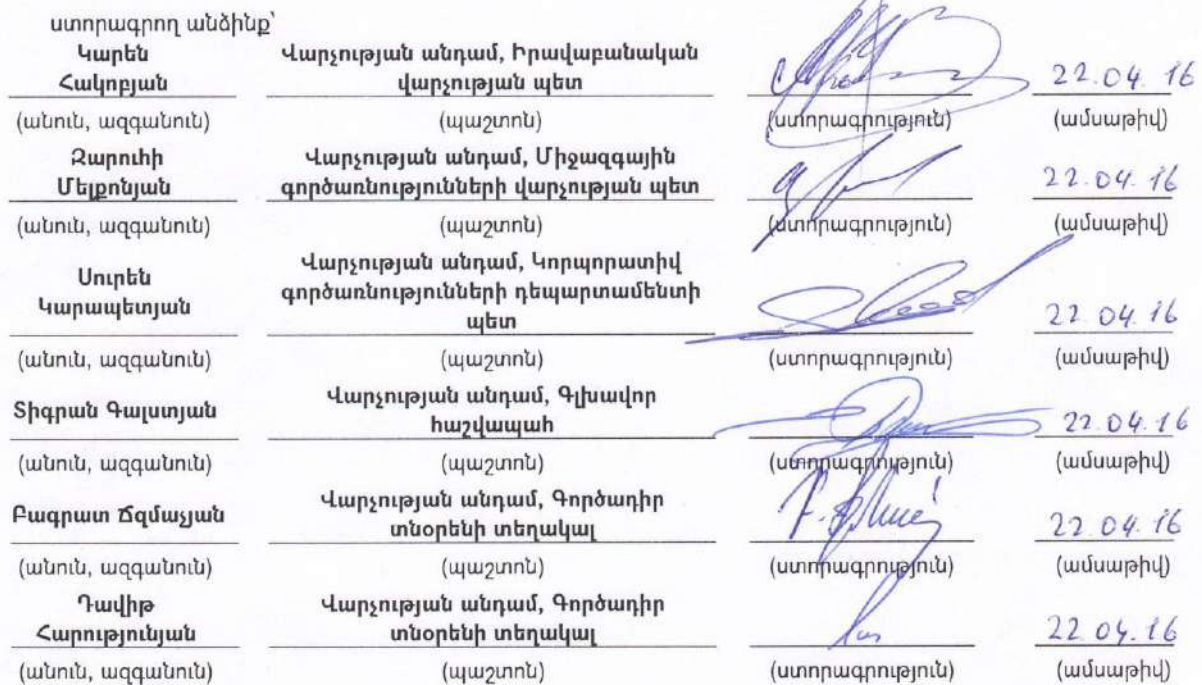 ստորագրող անձինք՝
Կարեն Հակոբյան Վարչության անդամ, Իրավաբանական վարչության պետ 22.04.16
(անուն, ազգանուն) (պաշտոն) (ստորագրություն) (ամսաթիվ)
Զարուհի Մելքոնյան Վարչության անդամ, Միջազգային գործառնությունների վարչության պետ 22.04.16
(անուն, ազգանուն) (պաշտոն) (ստորագրություն) (ամսաթիվ)
Սուրեն Կարապետյան Վարչության անդամ, Կորպորատիվ գործառնությունների դեպարտամենտի պետ 22.04.16
(անուն, ազգանուն) (պաշտոն) (ստորագրություն) (ամսաթիվ)
Տիգրան Գալստյան Վարչության անդամ, Գլխավոր հաշվապահ 22.04.16
(անուն, ազգանուն) (պաշտոն) (ստորագրություն) (ամսաթիվ)
Բագրատ Ճզմաչյան Վարչության անդամ, Գործադիր տնօրենի տեղակալ 22.04.16
(անուն, ազգանուն) (պաշտոն) (ստորագրություն) (ամսաթիվ)
Դավիթ Հարությունյան Վարչության անդամ, Գործադիր տնօրենի տեղակալ 22.04.16
(անուն, ազգանուն) (պաշտոն) (ստորագրություն) (ամսաթիվ)